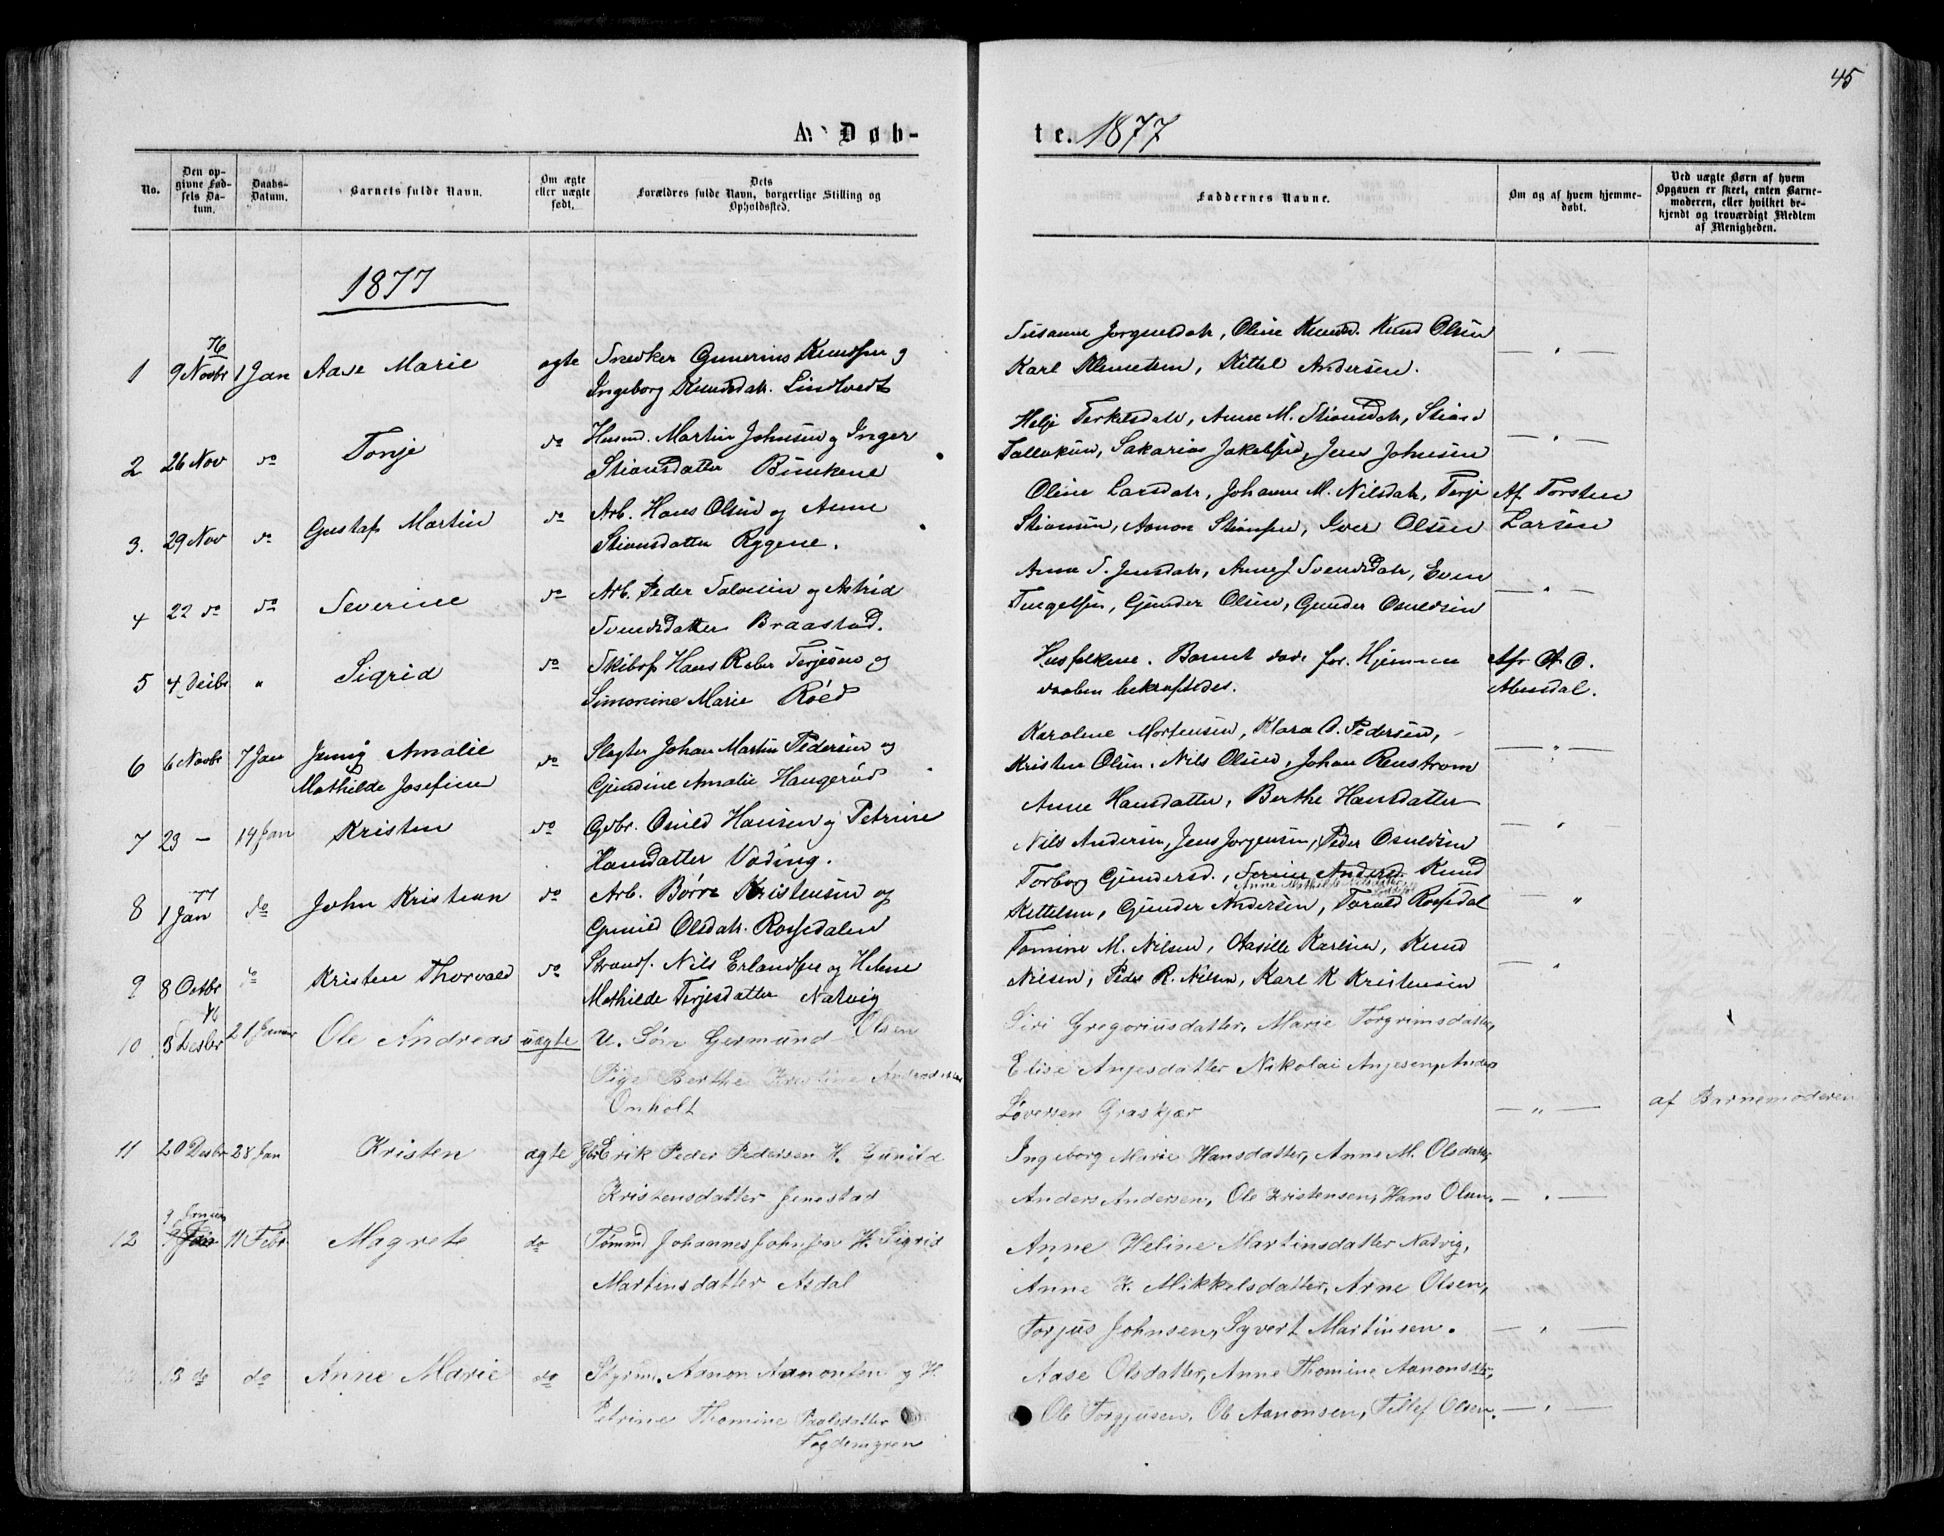 45
A. Døb-
te. 1877
No.
Den op-
givne Fød-
sels Da-
tum.
Daabs-
Datum.
Barnets fulde Navn.
Om ægte
eller uægte
født.
Dets
Forældres fulde Navn, borgerlige Stilling og
Opholdssted.
Faddernes Navne.
Om og af hvem hjemme-
døbt.
Ved uægte Børn af hvem
Opgaven er skeet, enten Barne-
moderen, eller hvilket be-
kjendt og troværdigt Medlem
af Menigheden.
1877
1 76 9 Novbr 1 Jan Aase Marie ægte Snedker Gunerius Knudsen og
Ingeborg Knudsdatr. Lindtvedt
Susanne Jorgensdatr, Oline Knudsd. Knud Olsen
Karl Klemetsen, Kittel Andersen. — " —
2 26 Nov do Tonje do Husmd. Martin Johnsen og Inger
Stiansdatter Bunkene
Helje Terkelsdatr, Anne M. Stiansdatr, Stian
Tallaksen, Sakarias Jakobsen, Jens Johnsen — " —
3. 29 Nov do Gustaf Martin do Arb. Hans Olsen og Anne
Stiansdatter Rygene.
Oline Larsdatr, Johanne M. Nilsdatr, Terje
Stiansen, Aanon Stiansen, Iver Olsen
Af Torsten
Larsen
4 22 do do Severine do Arb. Peder Salvesen og Astrid
Svendsdatter Braastad.
Anne S. Jensdatr, Anne J Svendsdatr, Even
Tengelsen, Gunder Olsen, Gunder Osuldsen — " —
5 4 Desbr " Sigrid do Skibsf Hans Reber Terjesen og
Simonine Marie Röed
Husfolkene. Barnet døde før Hjemme
daaben bekræftedes.
Afr O. O.
6 6 Novbr 7 Jan Jenny Amalie
Mathilde Josefine do Slagter Johan Martin Pedersen og
Gundine Amalie Haugeröd
Karoline Mortensen, Klara O. Pedersen,
Kristen Olsen, Nils Olsen, Johan Renstrom — " —
7 23 — 14 Jan Kristen do Gbr. Osuld Hansen og Petrine
Hansdatter Vöding.
Anne Hansdatter, Berthe Hansdatter
Nils Andersen, Jens Jorgensen, Peder Osuldsen — " —
8 77 1 Jan do John Kristian do Arb. Börre Kristensen og
Gunild Olsdatr. Rossedalen
Torborg Gundersd., Serine Andersd. Knud
Anne Mathilde Nilsdatter
Kittelsen, Gunder Andersen, Torald Rossedal — " —
9 8 Octbr do Kristen Thorvald do Strandf. Nils Erlandsen og Helene
Mathilde Terjesdatter Natvig
Tomine M. Nilsen, Aasille Karlsen, Knud
Nilsen, Peder R. Nilsen, Karl K Kristensen — " —
10 76 3 Desbr 21 Januar Ole Andreas uægte U. Söm Germund Olsen
Pige Berthe Kristine Andreasdatter
Omholt
Siri Gregoriusdatter, Marie Torgrimsdatter,
Elise Anjesdatter Nikolai Anjesen, Anders
Löversen Graskjær — " — af Barnemoderen
11 20 Desbr 28 Jan Kristen ægte Gbr Erik Peder Pedersen H. Gunild
Kristensdatter Jenestad
Ingeborg Marie Hansdatter, Anne M. Olsdatter,
Anders Andersen, Ole Kristensen, Hans Olsen. — " —
12 9 Januar 11 Febr Magrete do Tömmd Johannes Johnsen H. Sigrid
Martinsdatter Asdal
Anne Heline Martinsdatter Natvig,
Anne K. Mikkelsdatter, Arne Olsen,
Torjus Johnsen, Syvert Martinsen. — " —
13 3 do do Anne Marie do Styrmd. Aanon Aanonsen og H.
Petrine Thomine Paalsdatter
Fogdemyren
Aase Olsdatter, Anne Thomine Aanonsdtr,
Ole Torgjusen, Ole Aanonsen, Tellef Olsen. — " —